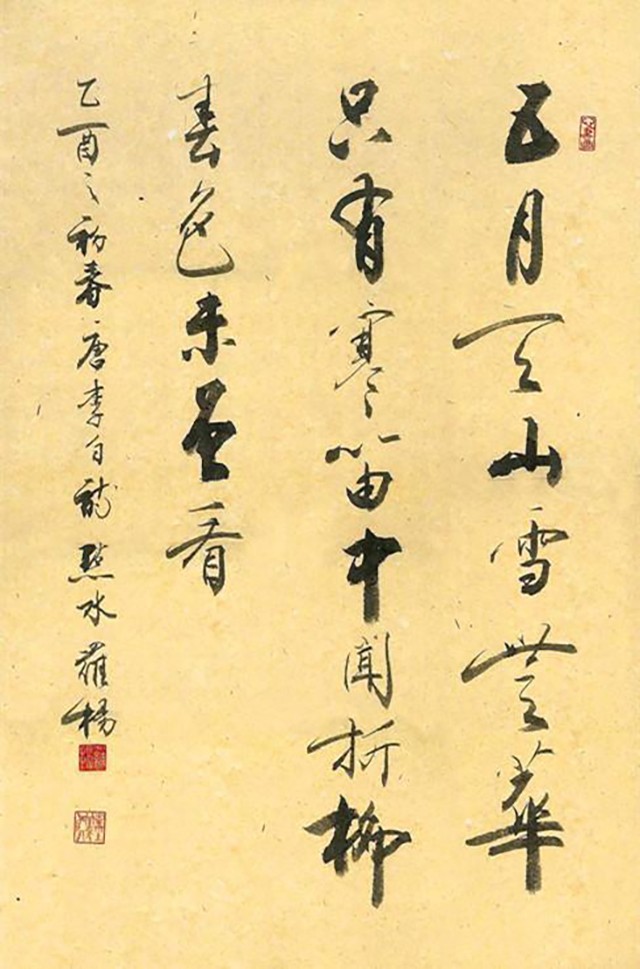 五月天山雪無華
只有寒笛中聞折柳
春色未曾看
乙酉之初春唐李白詩點水羅楊